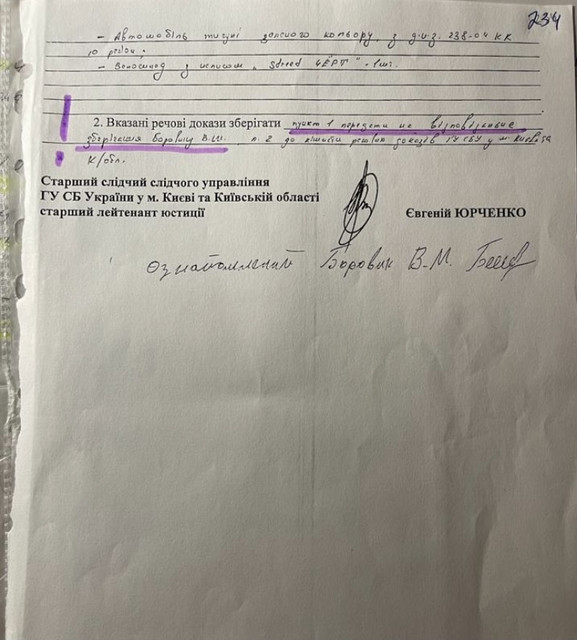 234
- Автомобіль тигуан зеленого кольору з д.н.з. 238-04 КК
- Велосипед з написом
- 1шт.
2. Вказані речові докази зберігати пункт 1 передати на відповідальне
зберігання Боровику В.М. п. 2 до кімнати речових доказів ГУ СБУ у м. Києві та
К/обл.
Старший слідчий слідчого управління
ГУ СБ України у м. Києві та Київській області
старший лейтенант юстиції
Євгеній ЮРЧЕНКО
ознайомлений Боровик В.М.